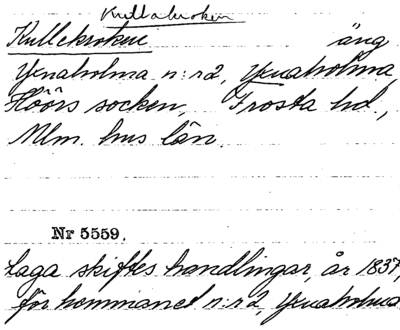 Kullakroken
Kullekroken äng
Ynaholma n:r2, Ynaholma,
Höörs socken, Frosta hd.,
Mlm. hus län.
Nr 5559.
Laga skiftes handlingar, år 1837,
för hemmanet n:r2, Ynaholma